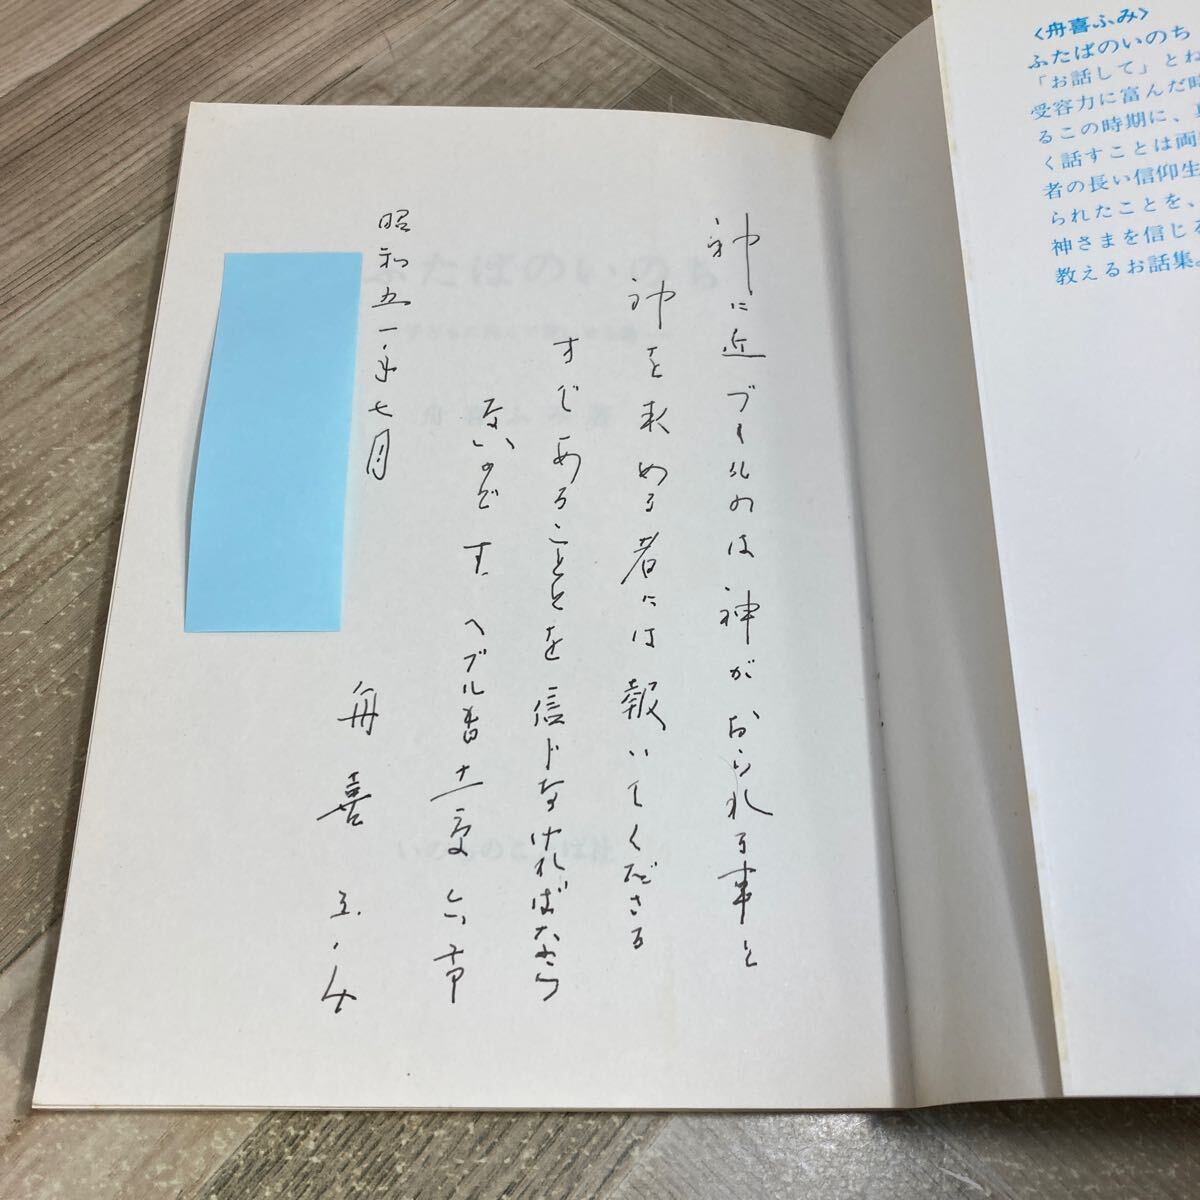 〈舟喜ふみ〉
ふたばのいのち
「お話して」とね
受容力に富んだ時
るこの時期に、
く話すことは両
者の長い信仰生
られたことを、
神さまを信じる
教えるお話集。
神に近づくものは神がおられる事と
神を求める者には報いてくださる
すじあることとを信じなければなら
ないのです。ヘブル書十一章六節
昭和五一年七月
舟喜ふみ
ふたばのいのち
舟喜ふみ著
いのちのことば社